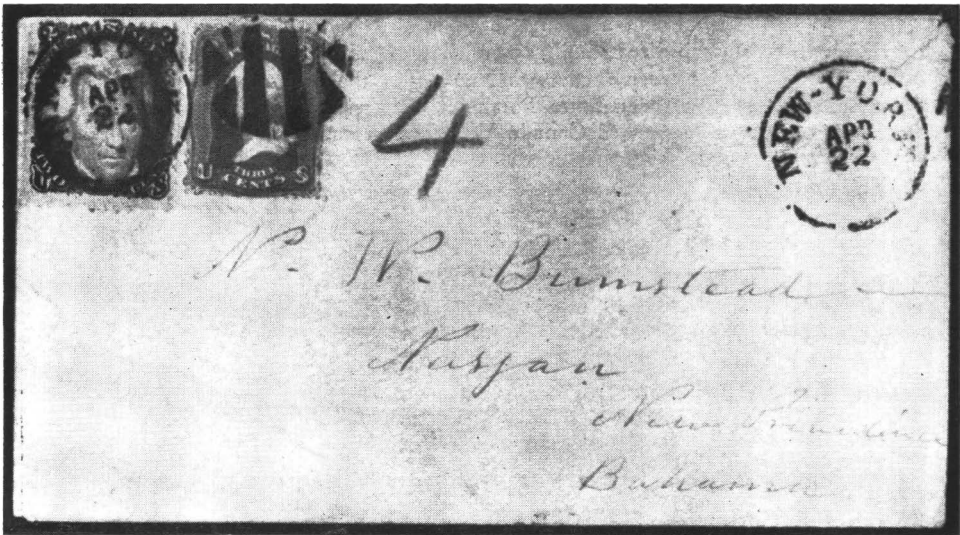 APR
22
U S
CENTS
4
NEW-YORK
APR
22
N. W. Bumstead
Nassau
New Providence
Bahama